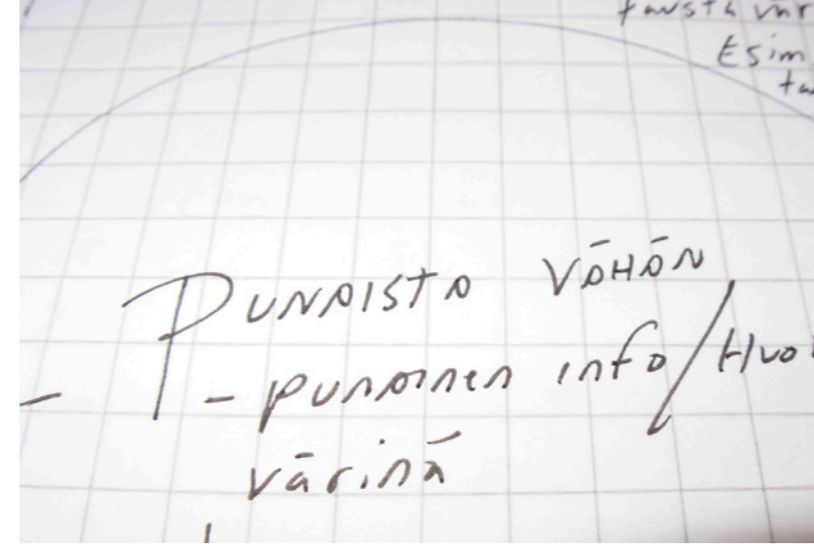 tausta vär
Esim
ta
PUNAISTA VÄHÄN
- - punainen info/Huo
värinä